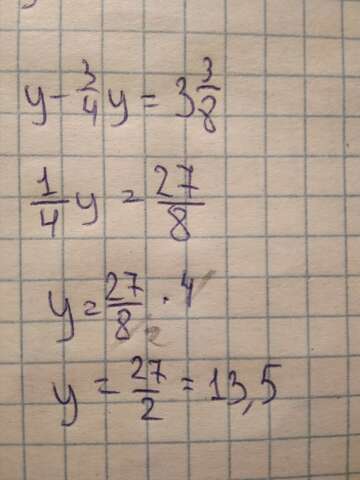 y - 3/4 y = 3 3/8
1/4 y = 27/8
y = 27/8 · 4
2
y = 27/2 = 13,5